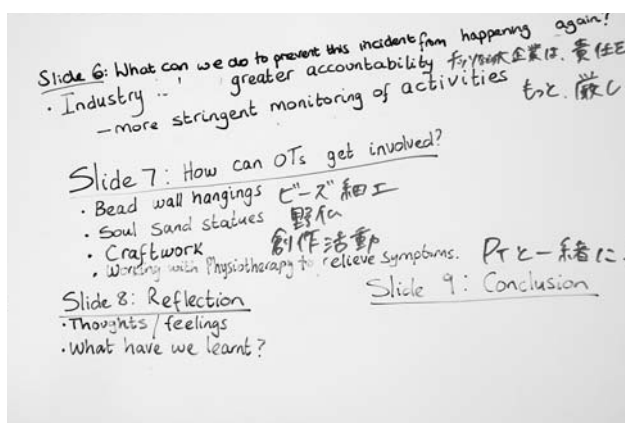 Slide 6: What can we do to prevent this incident from happening again?
· Industry greater accountability 企業は、責任を
– more stringent monitoring of activities もっと、厳し
Slide 7: How can OTs get involved?
· Bead wall hangings ビーズ細工
· Soul Sand statues 野仏
· Craftwork 創作活動
· Working with Physiotherapy to relieve symptoms. PTと一緒に
Slide 8: Reflection
· Thoughts / feelings
· What have we learnt?
Slide 9: Conclusion